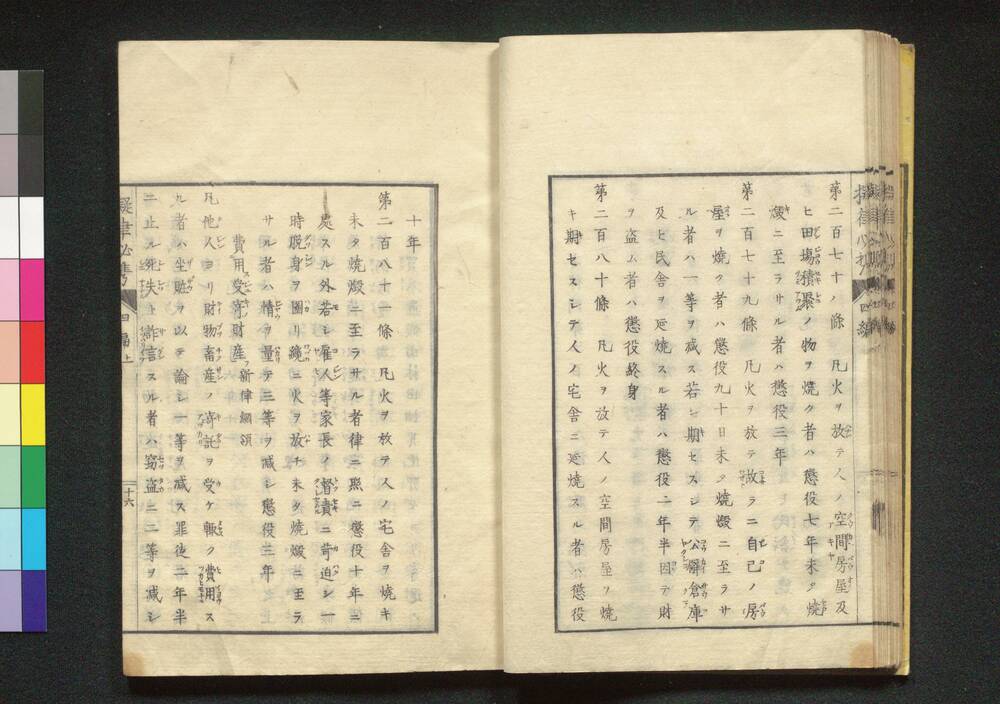 第二百七十八條　凡火ヲ放テ人ノ空間房屋及
ヒ田場積聚ノ物ヲ燒ク者ハ懲役七年未タ燒
燬ニ至ラサル者ハ懲役三年
第二百七十九條　凡火ヲ放テ故ラニ自己ノ房
屋ヲ燒ク者ハ懲役九十日未タ燒燬ニ至ラサ
ル者ハ一等ヲ減ス若シ期セスシテ公廨倉庫
及ヒ民舎ヲ延燒スル者ハ懲役二年半因テ財
ヲ盗ム者ハ懲役終身
第二百八十條　凡火ヲ放テ人ノ空間房屋ヲ燒
キ期セスシテ人ノ宅舎ニ延燒スル者ハ懲役
十年
第二百八十一條　凡火ヲ放テ人ノ宅舎ヲ燒キ
未タ燒燬ニ至ラサル者律ニ照ニ懲役十年ニ
處スル外若シ雇人等家長ノ督責ニ苛迫シ一
時脱身ヲ圖リ纔ニ火ヲ放チ未タ燒燬ニ至ラ
サル者ハ情ヲ量テ三等ヲ減シ懲役三年
費用受寄財産　新律綱領
凡他人ヨリ財物畜産ノ寄託ヲ受ケ輙ク費用ス
ル者ハ坐贓ヲ以テ論シ一等ヲ減ス罪徒二年半
ニ止ル死失ト詐言スル者ハ窃盗ニ二等ヲ減シ
擬律必携
四編上
十六